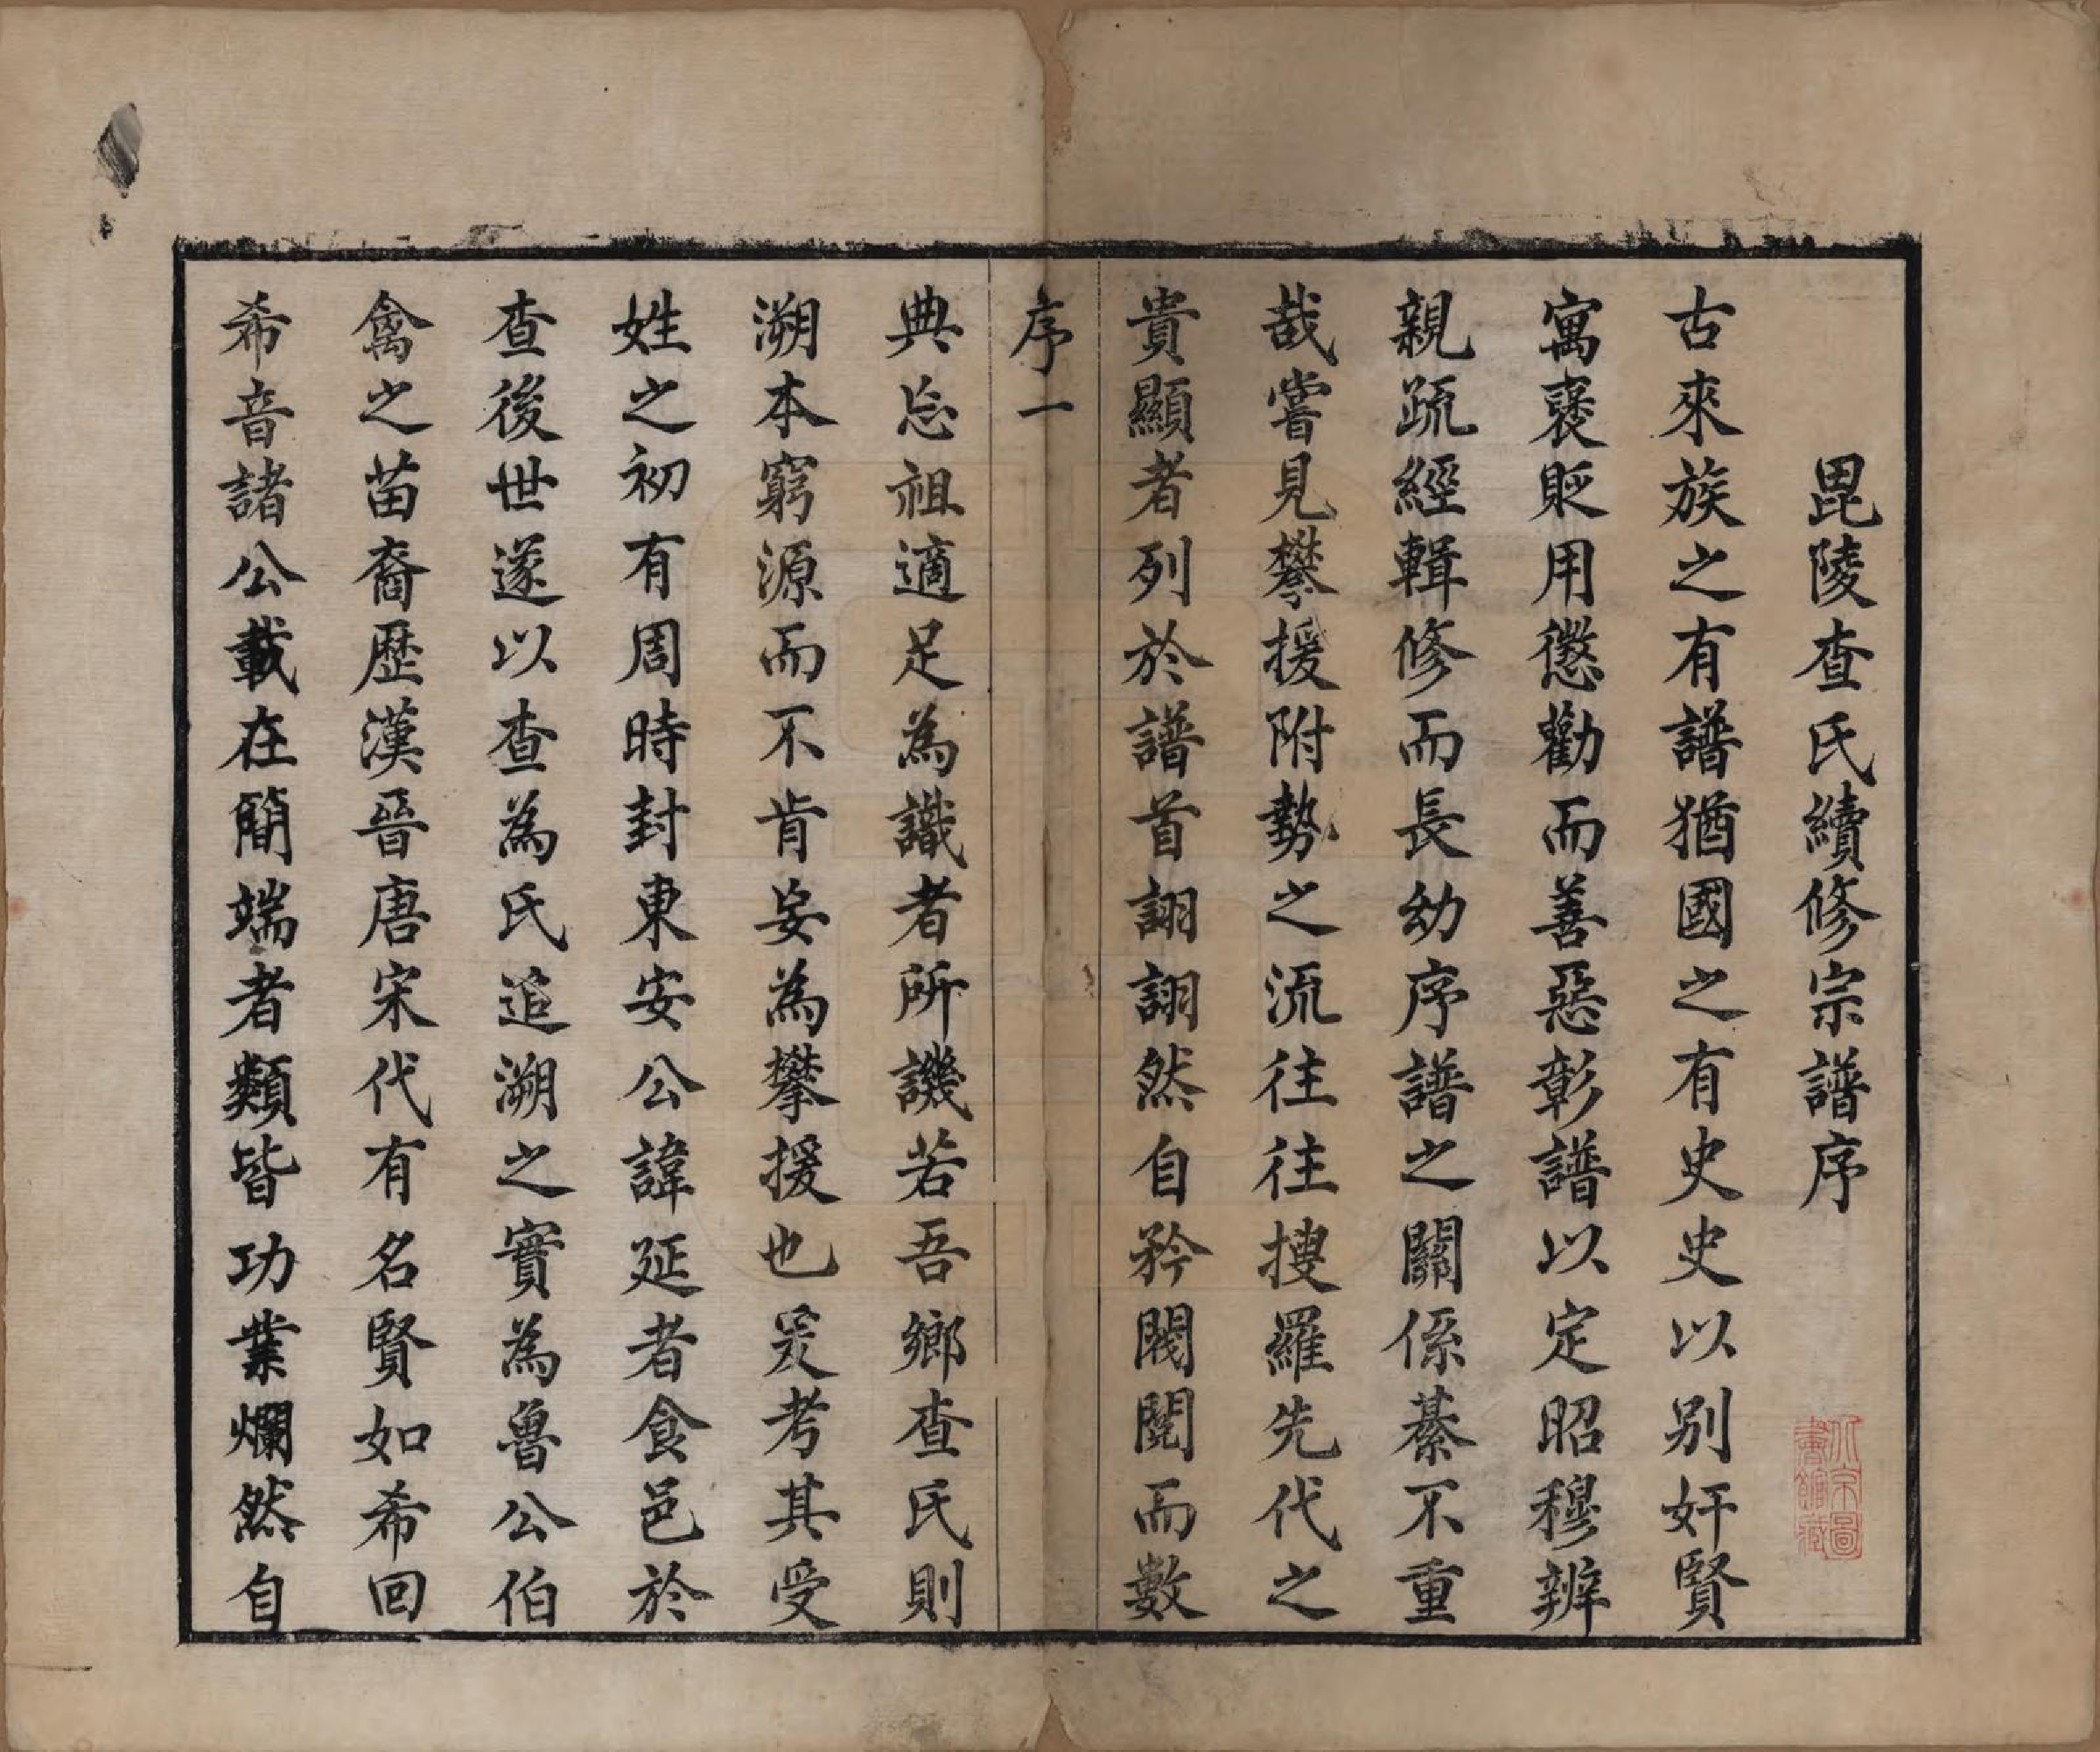 毘陵查氏續修宗譜序
古來族之有譜猶國之有史史以别奸賢
寓褒貶用懲勸而善惡彰譜以定昭穆辨
親疏經輯修而長幼序譜之關係綦不重
哉嘗見攀援附勢之流往往搜羅先代之
貴顯者列於譜首詡詡然自矜閥閱而數
序一
典忘祖適足為識者所譏若吾鄉查氏則
溯本窮源而不肯妄為攀援也爰考其受
姓之初有周時封東安公諱延者食邑於
查後世遂以查為氏追溯之實為魯公伯
禽之苗裔歷漢晉唐宋代有名賢如希回
希音諸公載在簡端者類皆功業爛然自
北京圖
書館藏